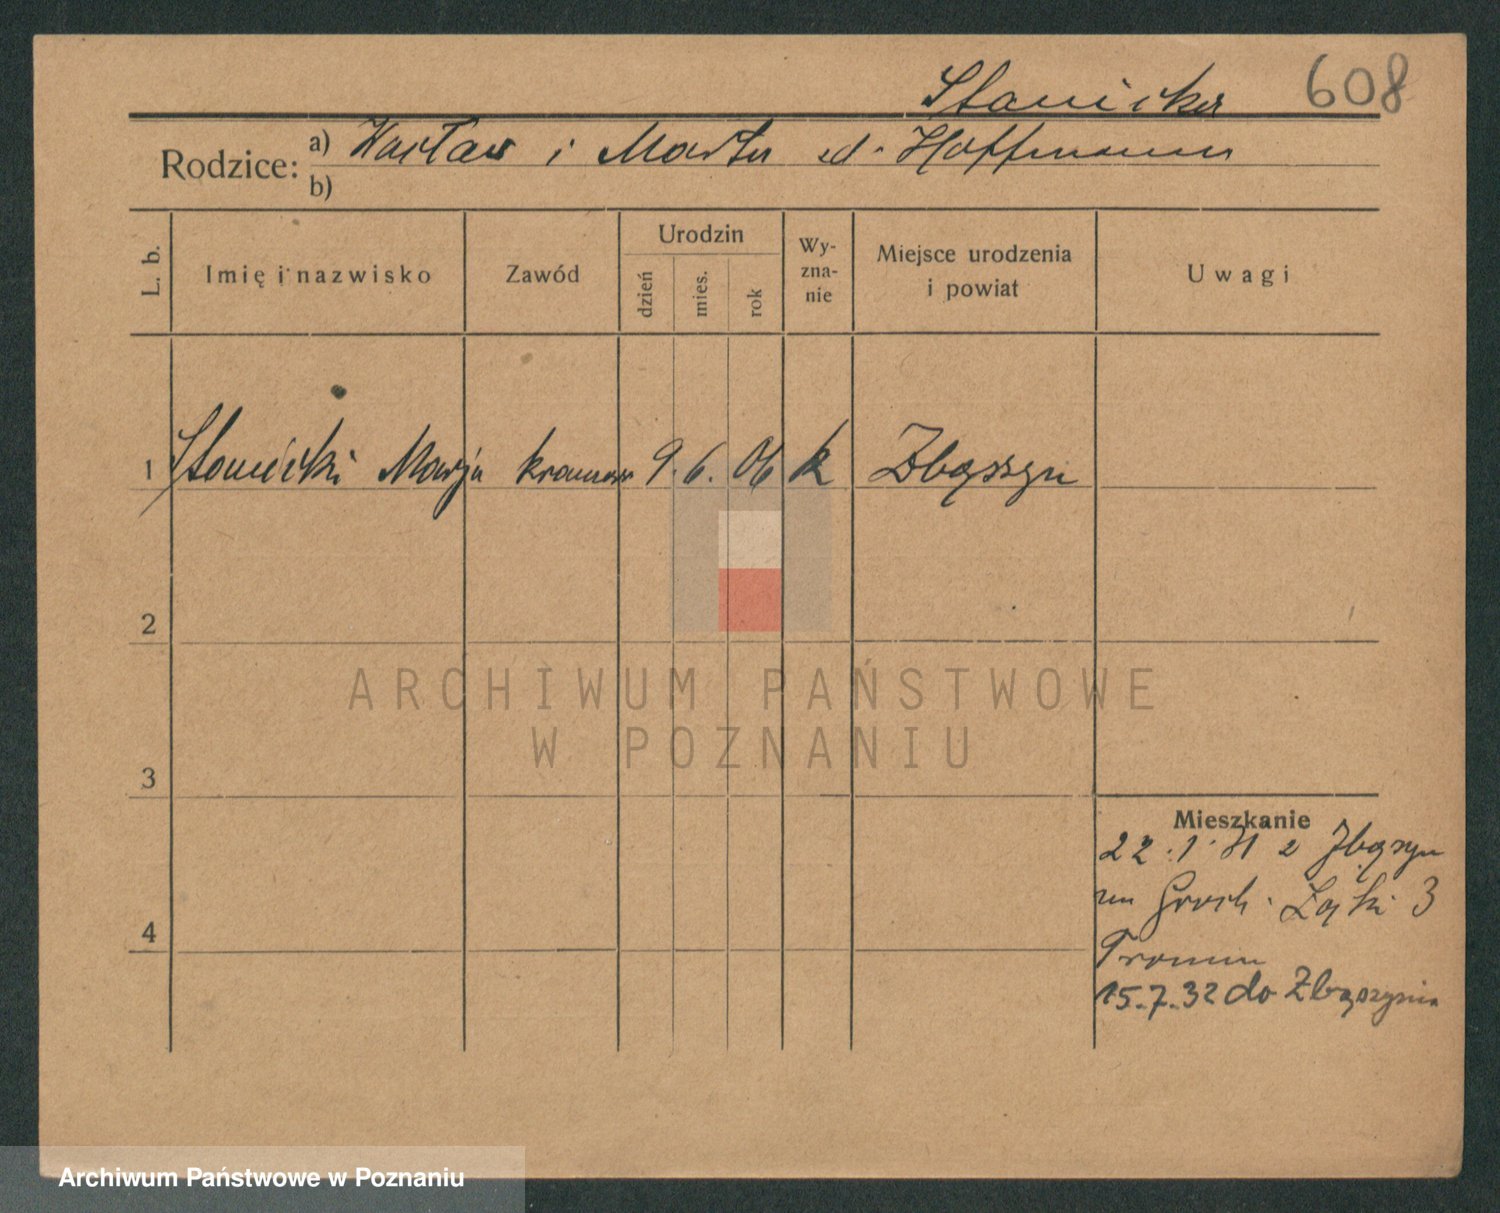 608
Stanicka
Rodzice: a) Wacław i Marta d. Hoffmann
b)
L. b. Imię i nazwisko Zawód Urodzin dzień mies. rok Wy-zna-nie Miejsce urodzenia i powiat Uwagi
1 Stanicki Marja 9. 6. 06 k Zbąszyn
2
ARCHIWUM PAŃSTWOWE
W POZNANIU
3
Mieszkanie
22.1.31 z Zbąszyn
4
Łąki 3
15.7.32 do Zbąszynia
Archiwum Państwowe w Poznaniu